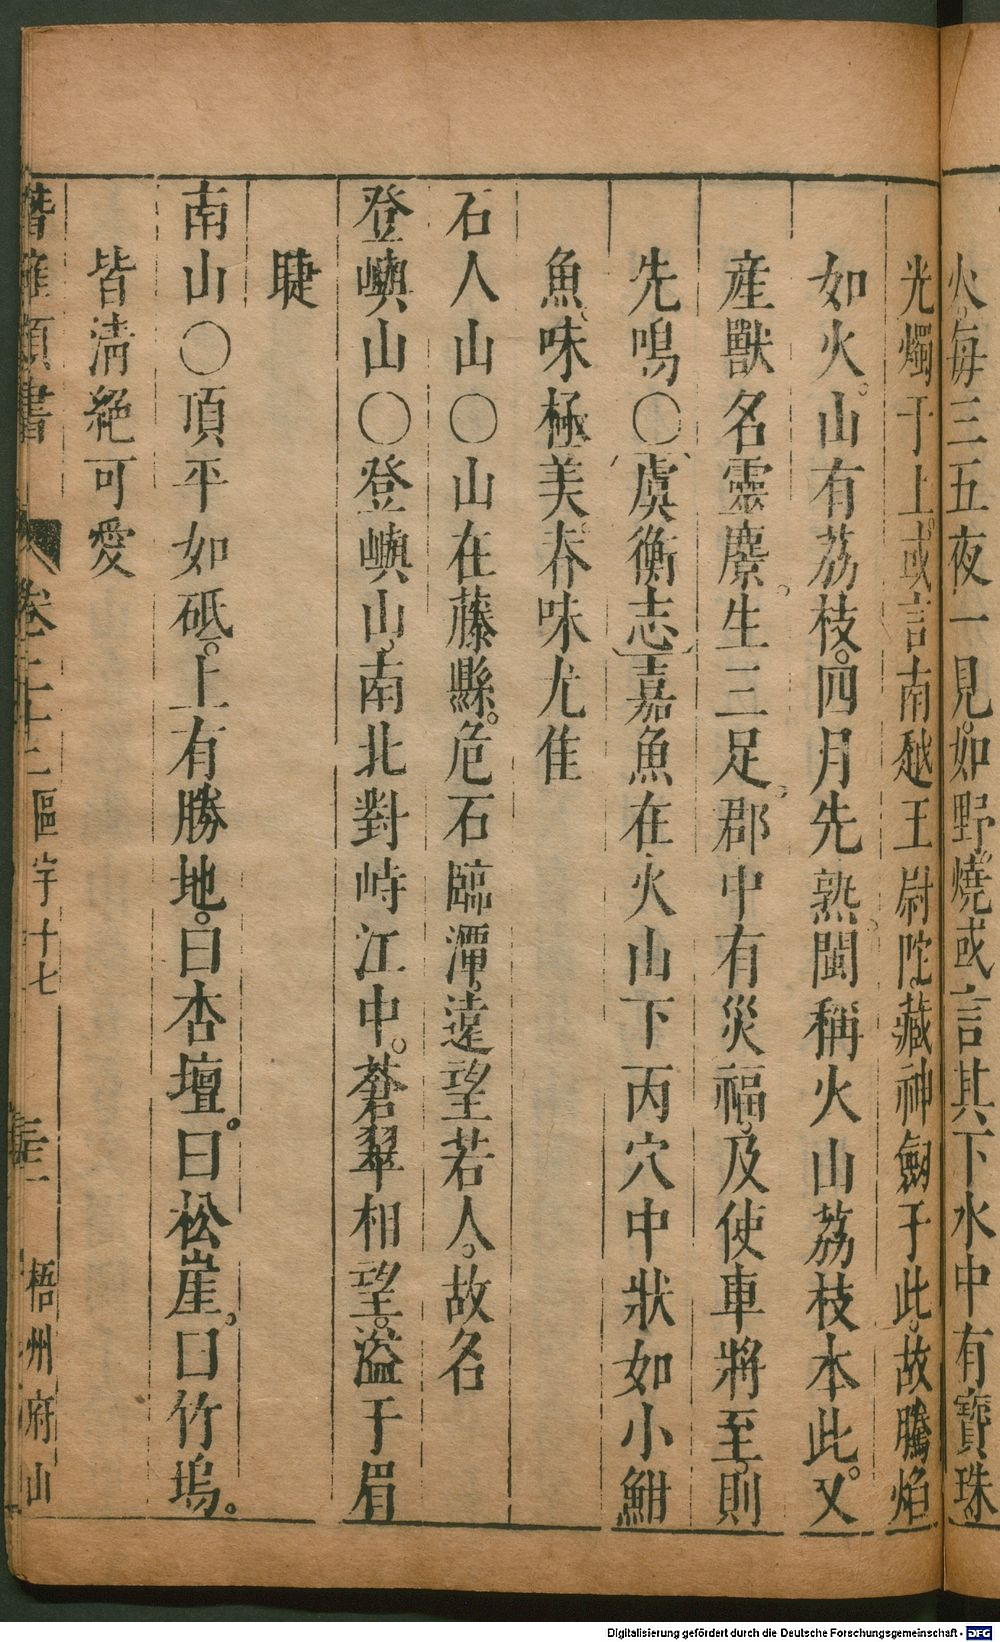 火。每三五夜一見。如野燒。或言其下水中有寶珠
光燭于上。或言南越王尉陀。藏神劔于此。故騰焰
如火。山有荔枝。四月先熟。閩稱火山荔枝本此。又
産獸名靈麖。生三足。郡中有災福。及使車將至。則
先鳴○虞衡志嘉魚在火山下丙穴中狀如小鮒
魚、味極美。春味尤佳
石人山○山在藤縣。危石臨潭。遠望若人。故名
登嶼山○登嶼山。南北對峙江中。蒼翠相望。溢于眉
睫
南山○項平如砥。上有勝地。曰杏壇。曰松崖。曰竹塢。
皆清絕可愛
潛確類書 卷二十七 區宇十七 梧州府山
Digitalisierung gefördert durch die Deutsche Forschungsgemeinschaft - DFG